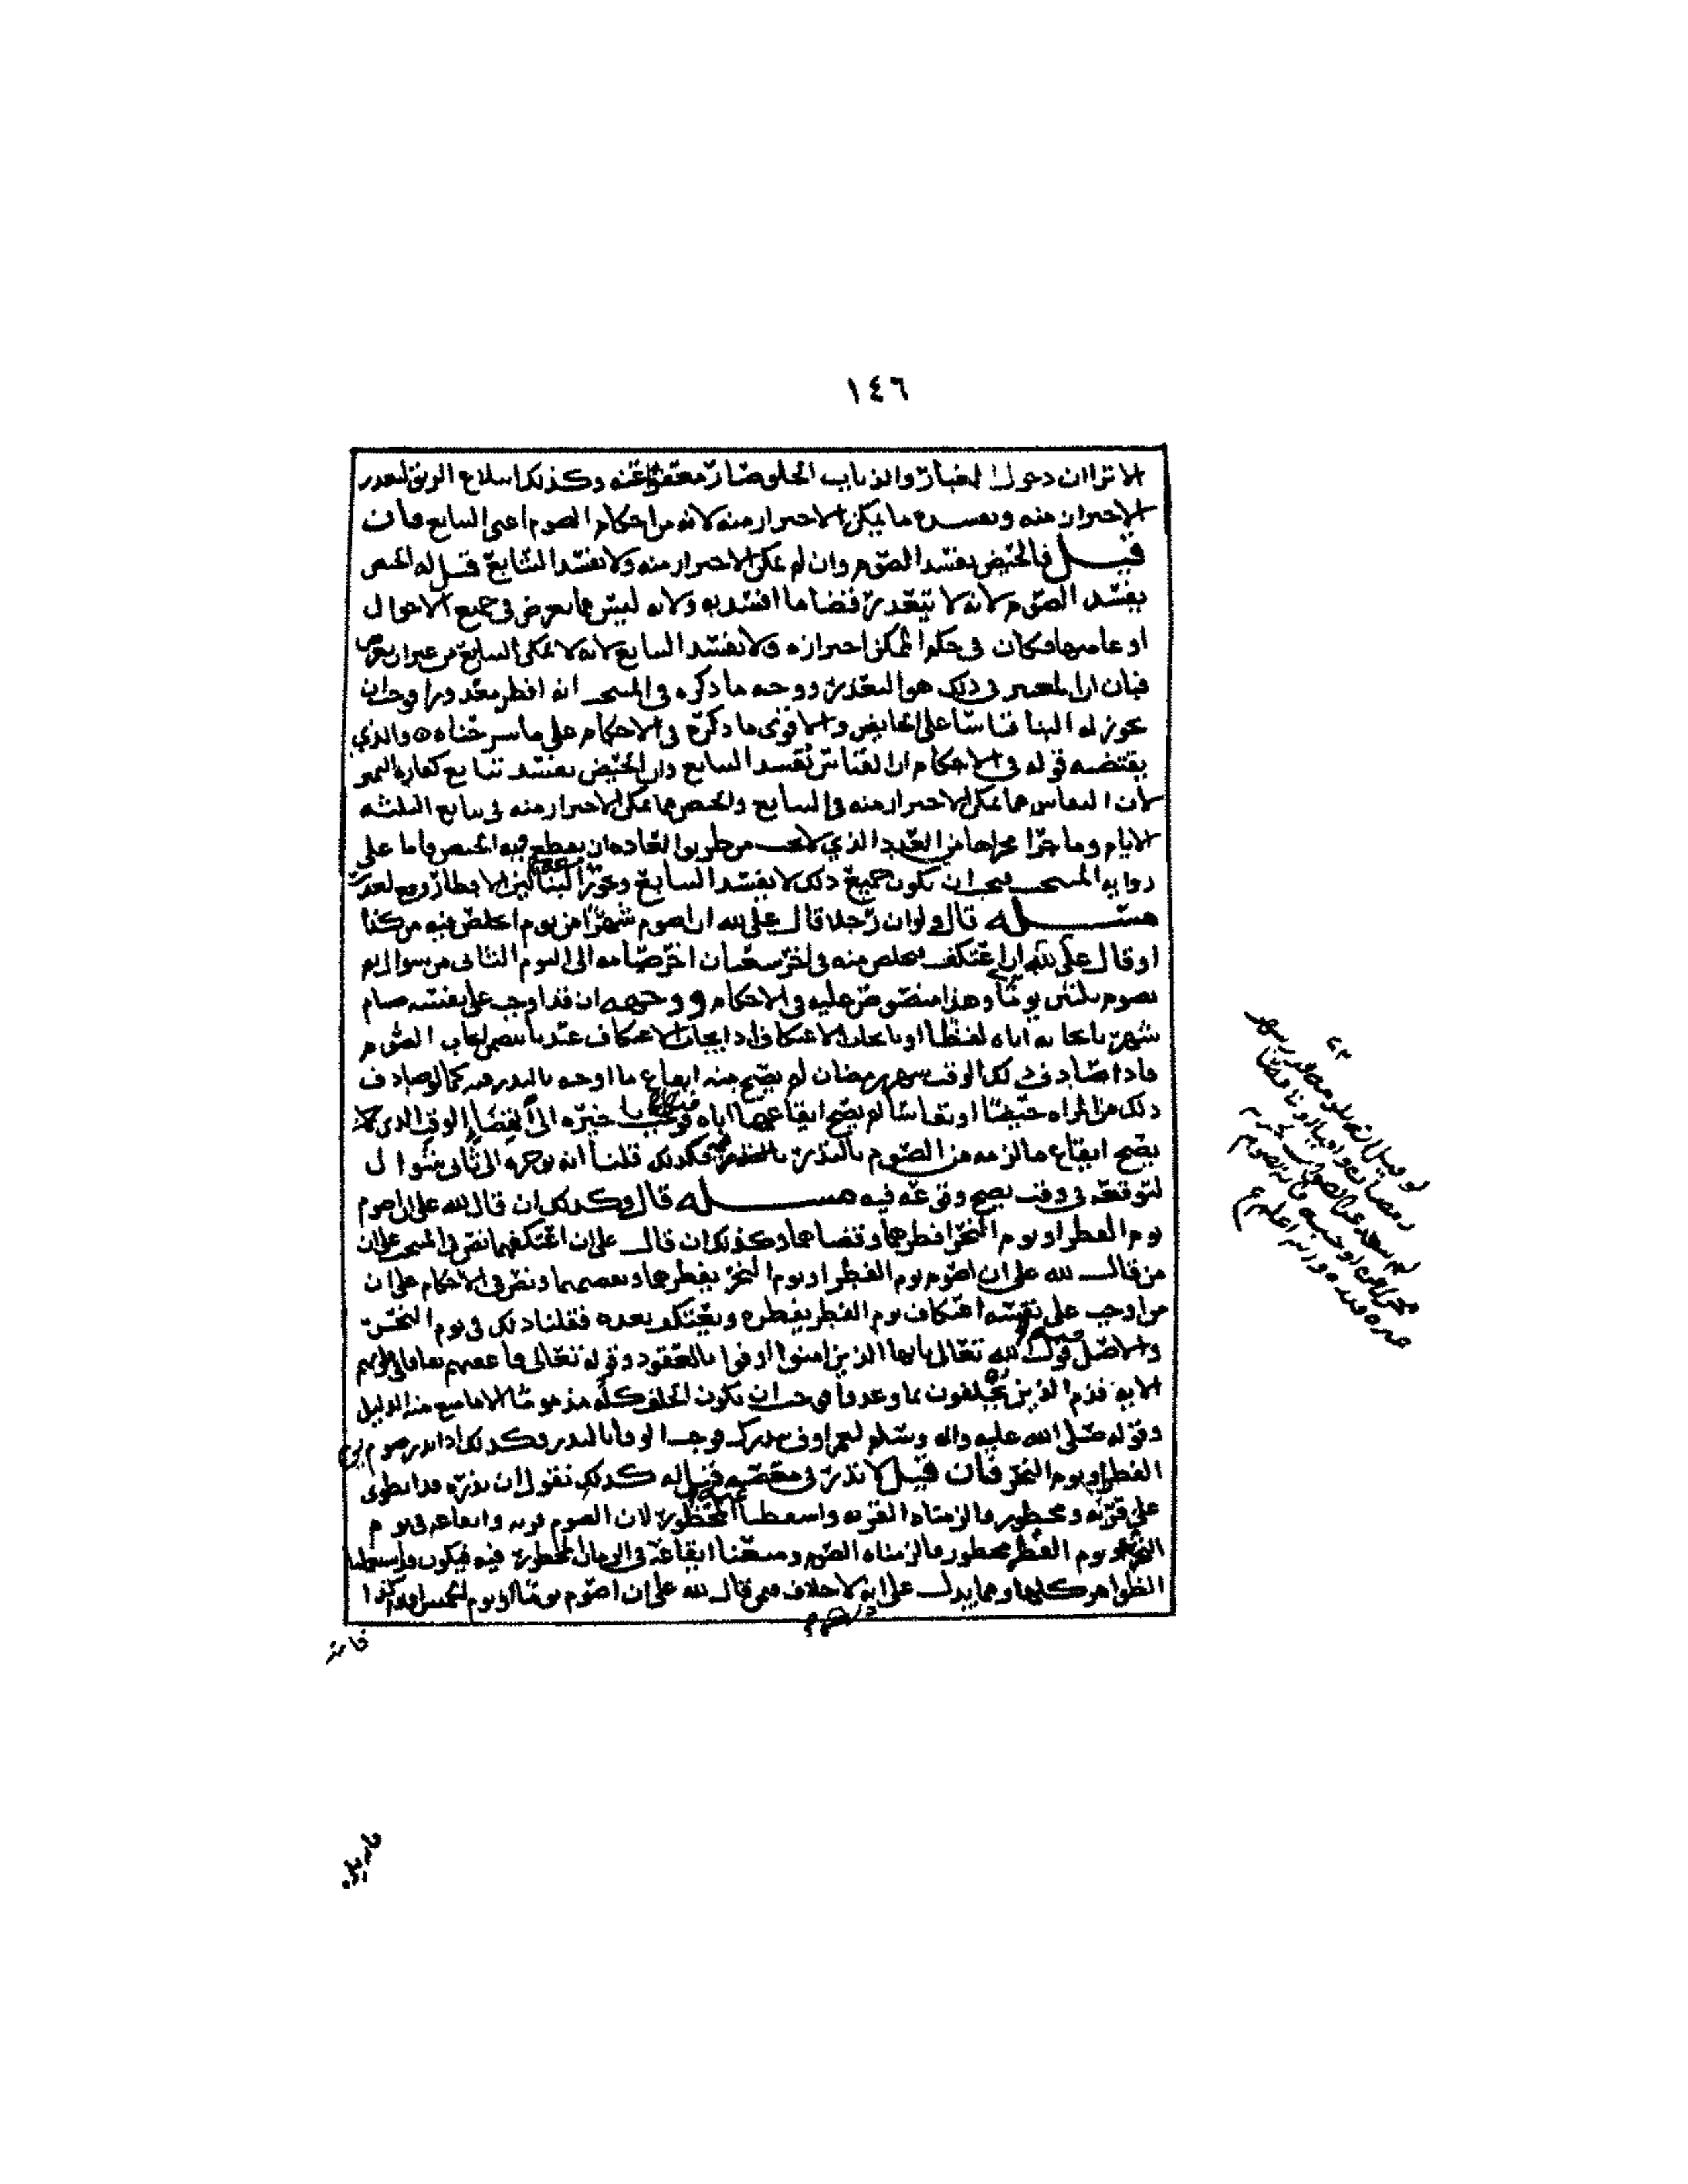 ١٤٦
الا ترا ان دخول الغبار والذباب الحلق صار معفوا عنه وكذلك ابتلاع الريق لتعذر
الاحتراز منه ويفسده ما يمكن الاحتراز منه لانه من احكام الصوم اعني التتابع فان
قيل فالحيض يفسد الصوم وان لم يمكن الاحتراز منه ولا يفسد التتابع قيل له الحيض
يفسد الصوم لانه لا يتعذر قضا ما افسد به ولانه ليس مما يعرض في جميع الاحوال
او عامتها فكان في حكم الممكن احترازه ولا يفسد التتابع لانه لا يمكن التتابع من غير ان يعرض
فبان ان المعتبر في ذلك هو التعذر ووجه ما ذكره في المنتخب انه افطر معذورا فوجب ان
يجوز له البنا قياسا على الحايض والاقوى ما ذكره في الاحكام على ما شرحناه ه والذي
يقتضيه قوله في الاحكام ان النفاس يفسد التتابع وان الحيض يفسد تتابع كفارة اليمين
لان النفاس مما يمكن الاحتراز منه في التتابع والحيض مما يمكن الاحتراز منه في تتابع الثلثه
الايام وما جرا مجراها من العدد الذي لا يجب من طريق العاده ان يقطع فيه الحيض واما على
روايه المنتخب فيجب ان يكون جميع ذلك لا يفسد التتابع ويجوز البنا لان الافطار وقع لعذر
مسئله قال ولو ان رجلا قال علي لله ان اصوم شهرا من يوم اخلص فيه من كذا
او قال علي لله ان اعتكف فخلص منه في اخر شعبان اخر صيامه الى اليوم الثاني من شوال ثم
يصوم ثلثين يوما وهذا منصوص عليه في الاحكام ووجهه انه قد اوجب على نفسه صيام
شهر بايجابه اياه لفظا او بايجاب الاعتكاف اذ ايجاب الاعتكاف عندنا يتضمن ايجاب الصوم
فاذا صادف ذلك الوقت شهر رمضان لم يصح منه ايقاع ما اوجبه بالنذر فيه كما لو صادف
ذلك من المراه حيضا او نفاسا لم يصح ايقاعها اياه فوجب تاخيره الى انقضا الوقت الذي لا
يصح ايقاع ما لزمه من الصوم بالنذر فكذلك قلنا انه يوخره الى ثاني شوال
لتوقعه في وقت يصح وقوعه فيه مسئله قال وكذلك ان قال لله علي ان اصوم
يوم الفطر او يوم النحر افطرهما وقضاهما وكذلك ان قال علي ان اعتكفهما نص في المنتخب على ان
من قال لله علي ان اصوم يوم الفطر او يوم النحر يفطرهما ويقضيهما ونص في الاحكام على ان
من اوجب على نفسه اعتكاف يوم الفطر يفطره ويعتكف بعده فقلنا ذلك في يوم النحر
والاصل فيه قول الله تعالى يا ايها الذين امنوا اوفوا بالعقود وقوله تعالى فاعقبهم نفاقا في قلوبهم
الايه فذم الذين يخلفون بما وعدوا فيجب ان يكون الخلف كله مذموما الا ما منع منه الدليل
وقوله صلى الله عليه واله وسلم لعمر اوف بنذرك فوجب الوفا بالنذر وكذلك اذا نذر صوم يوم
الفطر او يوم النحر فان قيل لا نذر في معصيه قيل له كذلك نقول ان نذره قد انطوى
على قربه ومحظور فالزمناه القربه واسقطنا المحظور لان الصوم قربه وايقاعه في يوم
النحر ويوم الفطر محظور فالزمناه الصوم ومنعنا ايقاعه في الزمان المحظور فيه
الظواهر كلها ومما يدل على انه لا خلاف فيمن قال لله علي ان اصوم يوما او يوم الخميس او يوم كذا